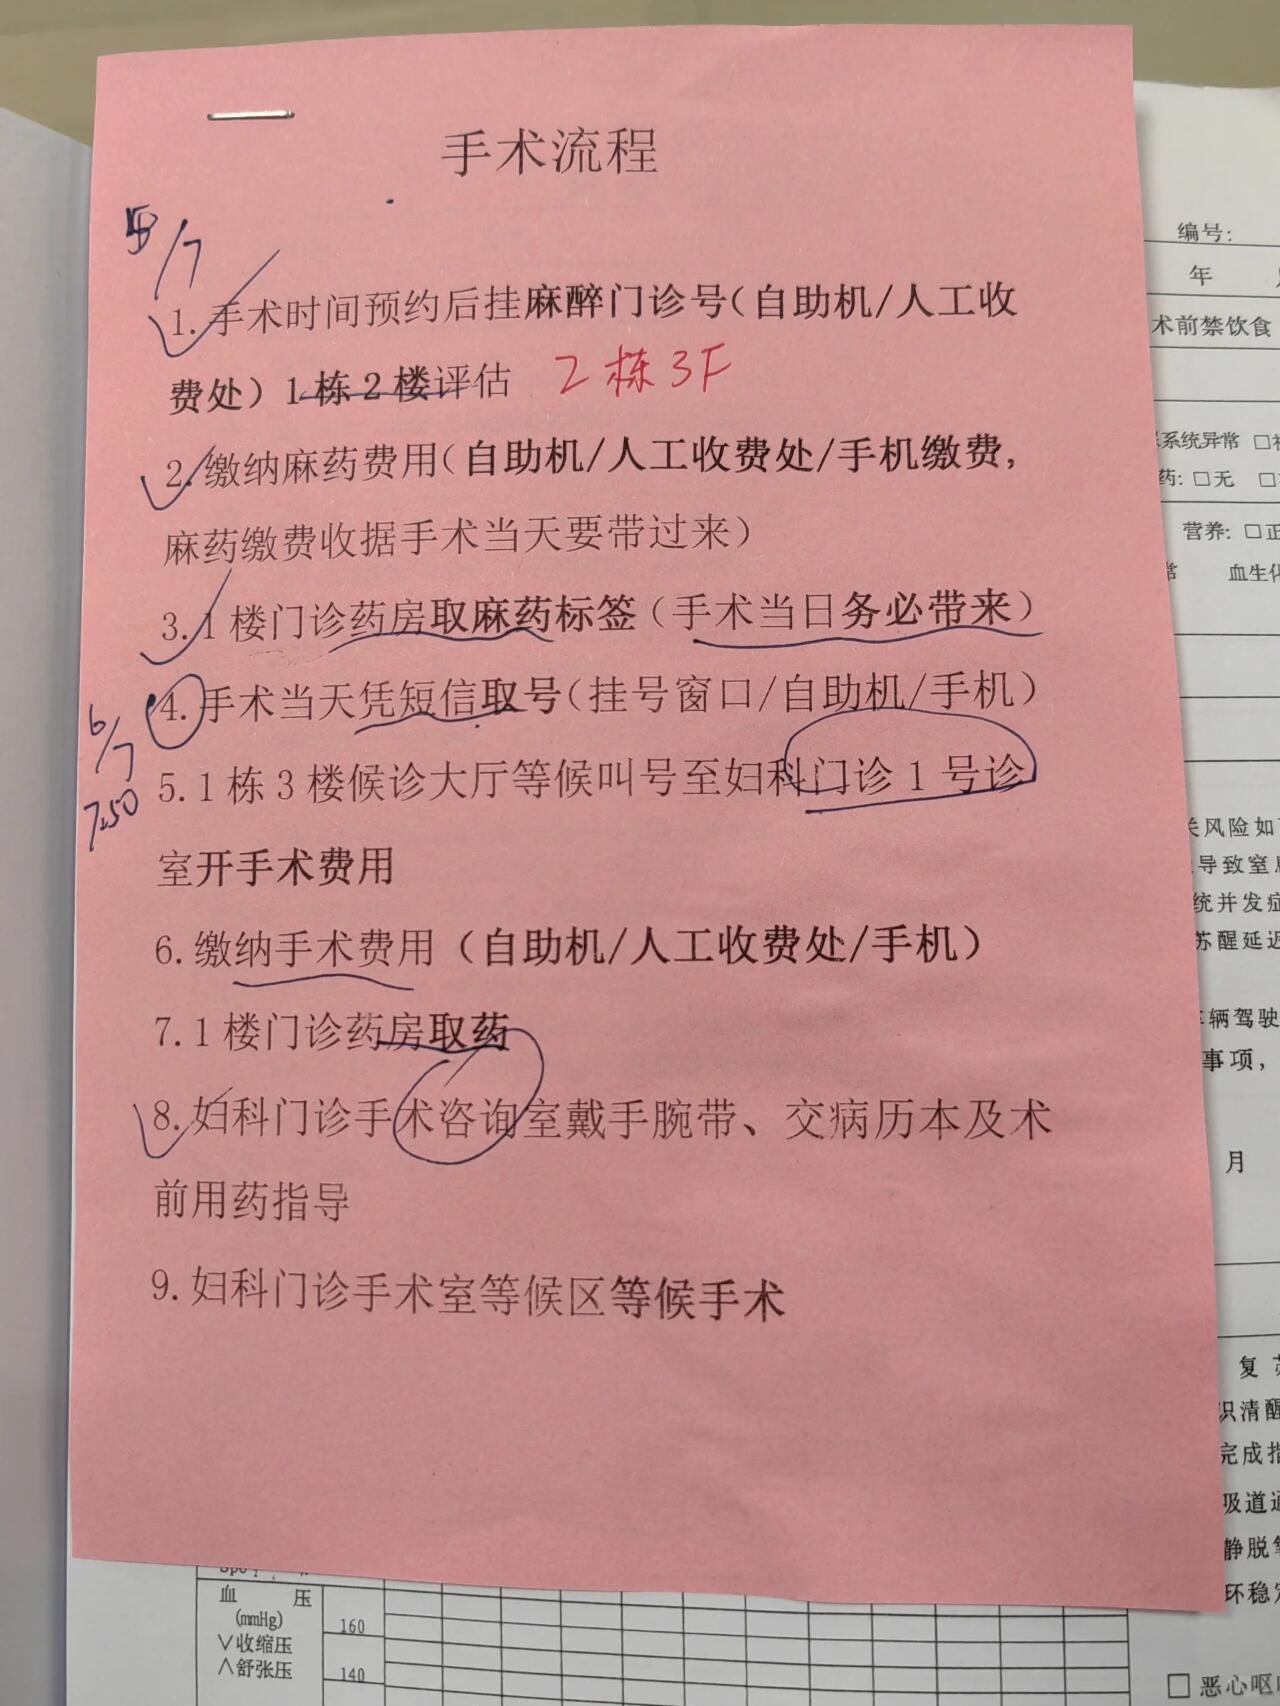 手术流程
5/7
编号:
年
1.手术时间预约后挂麻醉门诊号(自助机/人工收
术前禁饮食
费处)1栋2楼评估 2栋3F
2.缴纳麻药费用(自助机/人工收费处/手机缴费,
系统异常 □
药: □无 □
麻药缴费收据手术当天要带过来)
营养: □正
常 血生化
3.1楼门诊药房取麻药标签(手术当日务必带来)
4.手术当天凭短信取号(挂号窗口/自助机/手机)
6/7
7:50
5.1栋3楼候诊大厅等候叫号至妇科门诊1号诊
关风险如
室开手术费用
导致窒息
统并发症
6.缴纳手术费用(自助机/人工收费处/手机)
苏醒延迟
7.1楼门诊药房取药
车辆驾驶
事项,
8.妇科门诊手术咨询室戴手腕带、交病历本及术
月
前用药指导
9.妇科门诊手术室等候区等候手术
复苏
识清醒
完成指
吸道通
静脱氧
环稳定
血 压
(mmHg)
160
∨收缩压
∧舒张压
140
□ 恶心呕